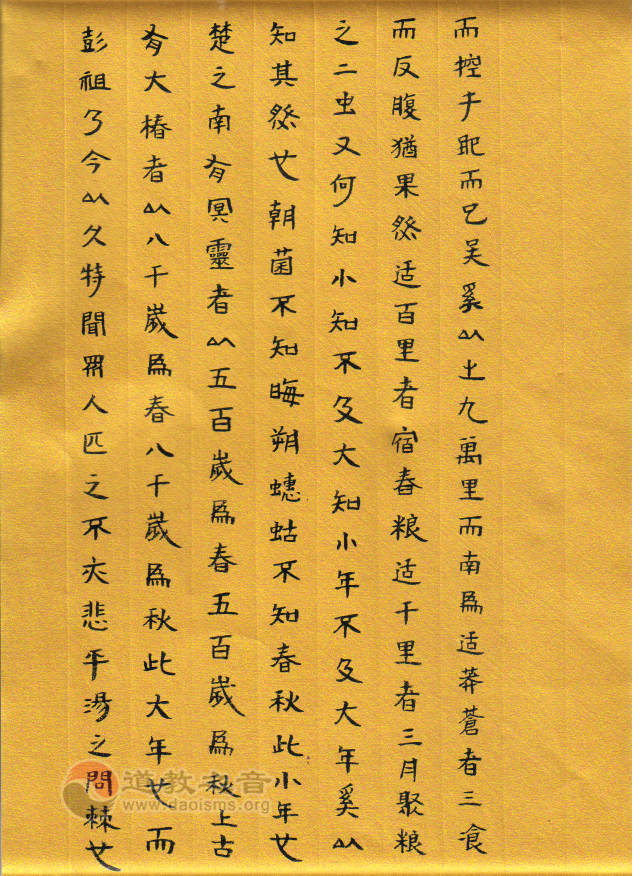 而控于地而已矣奚以之九萬里而南爲适莽蒼者三飡
而反腹猶果然适百里者宿舂粮适千里者三月聚粮
之二虫又何知小知不及大知小年不及大年奚以
知其然也朝菌不知晦朔蟪蛄不知春秋此小年也
楚之南有冥靈者以五百歲爲春五百歲爲秋上古
有大椿者以八千歲爲春八千歲爲秋此大年也而
彭祖乃今以久特聞眾人匹之不亦悲乎湯之問棘也
道教之音
www.daoisms.org